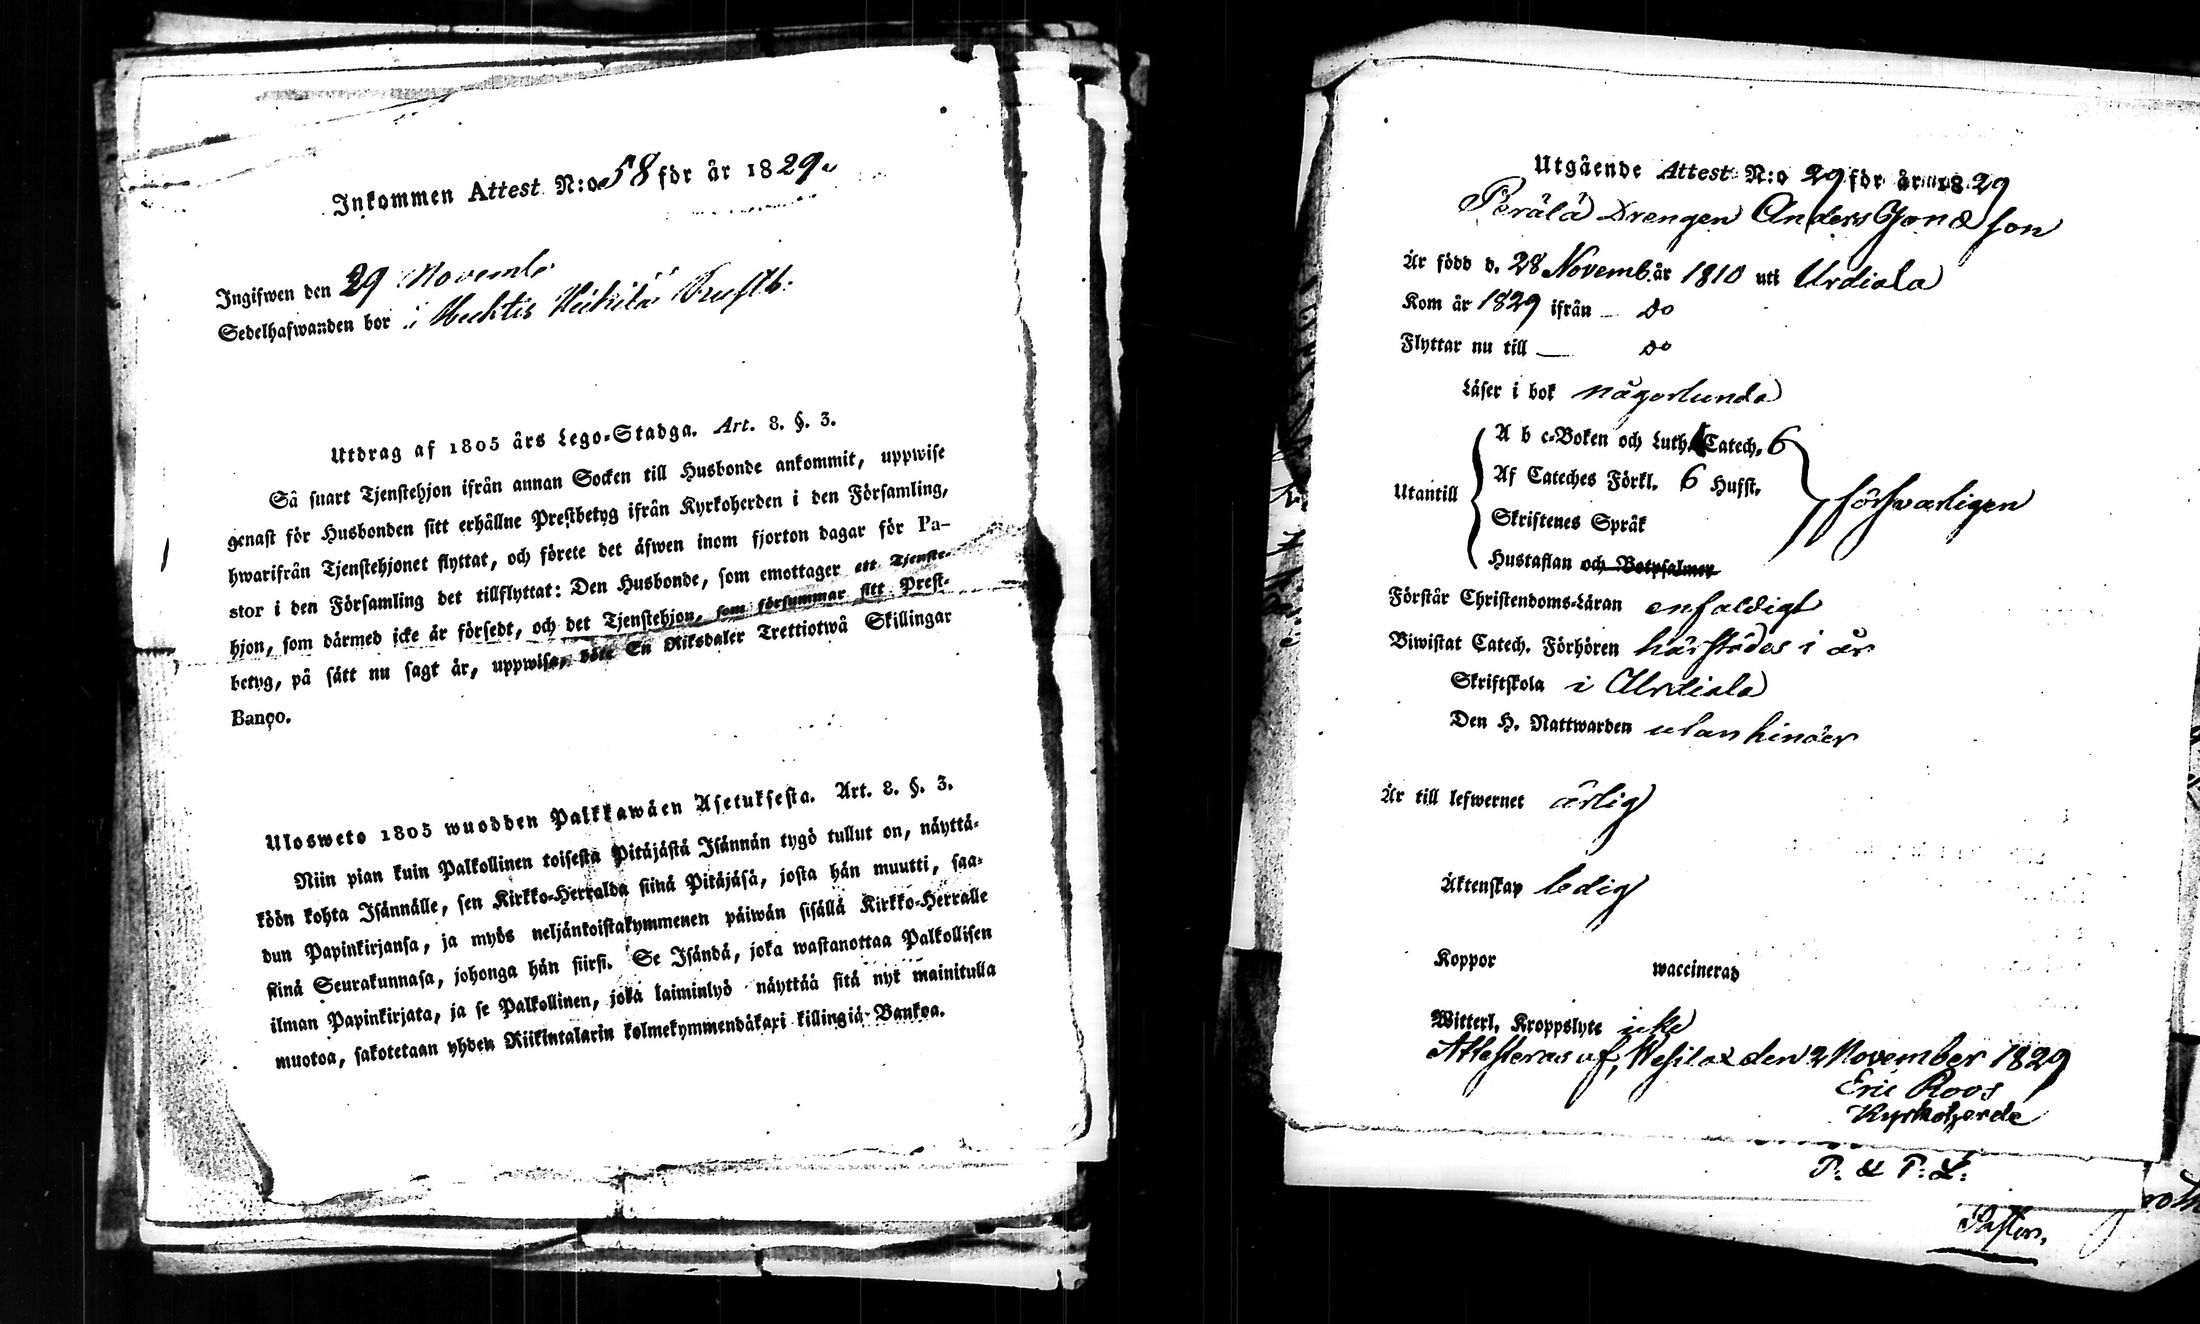 Inkommen Attest N:o 58 för år 1829.
Ingifwen den 29 Novemb:
Sedelhafwanden bor i Huhtis Heikilä
Utdrag af 1805 års Lego-Stadga. Art. 8. §. 3.
Så snart Tjenstehjon ifrån annan Socken till Husbonde ankommit, uppwise
genast för Husbonden sitt erhållne Prestbetyg ifrån Kyrkoherden i den Församling,
hwarifrån Tjenstehjonet flyttat, och förete det äfwen inom fjorton dagar för Pa-
stor i den Församling det tillflyttat: Den Husbonde, som emottager ett Tjenste-
hjon, som därmed icke är försedt, och det Tjenstehjon, som försummar sitt Prest-
betyg, på sätt nu sagt är, uppwisa, böte En Riksdaler Trettiotwå Skillingar
Banco.
Ulosweto 1805 wuodden Palkkawäen Asetuksesta. Art. 8. §. 3.
Niin pian kuin Palkollinen toisesta Pitäjästä Isännän tygö tullut on, näyttä-
köön kohta Isännälle, sen Kirkko-Herralda siinä Pitäjäsä, josta hän muutti, saa-
dun Papinkirjansa, ja myös neljänkoistakymmenen päiwän sisällä Kirkko-Herralle
siinä Seurakunnasa, johonga hän siirsi. Se Isändä, joka wastanottaa Palkollisen
ilman Papinkirjata, ja se Palkollinen, joka laiminlyö näyttää sitä nyt mainitulla
muotoa, sakotetaan yhden Riikintalarin kolmekymmendäkaxi killingiä Bankoa.
Utgående Attest N:o 29 för år 1829
Perälä Drengen Anders Jonasson
Är född d. 28 Novemb. år 1810 uti Urdiala
Kom år 1829 ifrån — do
Flyttar nu till — do
Läser i bok någorlunda
A b c-Boken och Luth. Catech. 6
Af Cateches Förkl. 6 Hufst.
Utantill försvarligen
Skriftenes Språk
Hustaflan och Botpsalmer
Förstår Christendoms-Läran enfaldigt
Biwistat Catech. Förhören härstädes i år
Skriftskola i Urdiala
Den H. Nattwarden utan hinder
Är till lefwernet ärlig
Äktenskap ledig
Koppor waccinerad
Witterl. Kroppslyte icke
Attesteras af, Wesilax den 2 November 1829
Eric Roos
Kyrkoherde
P. & P. L:
Pastor.